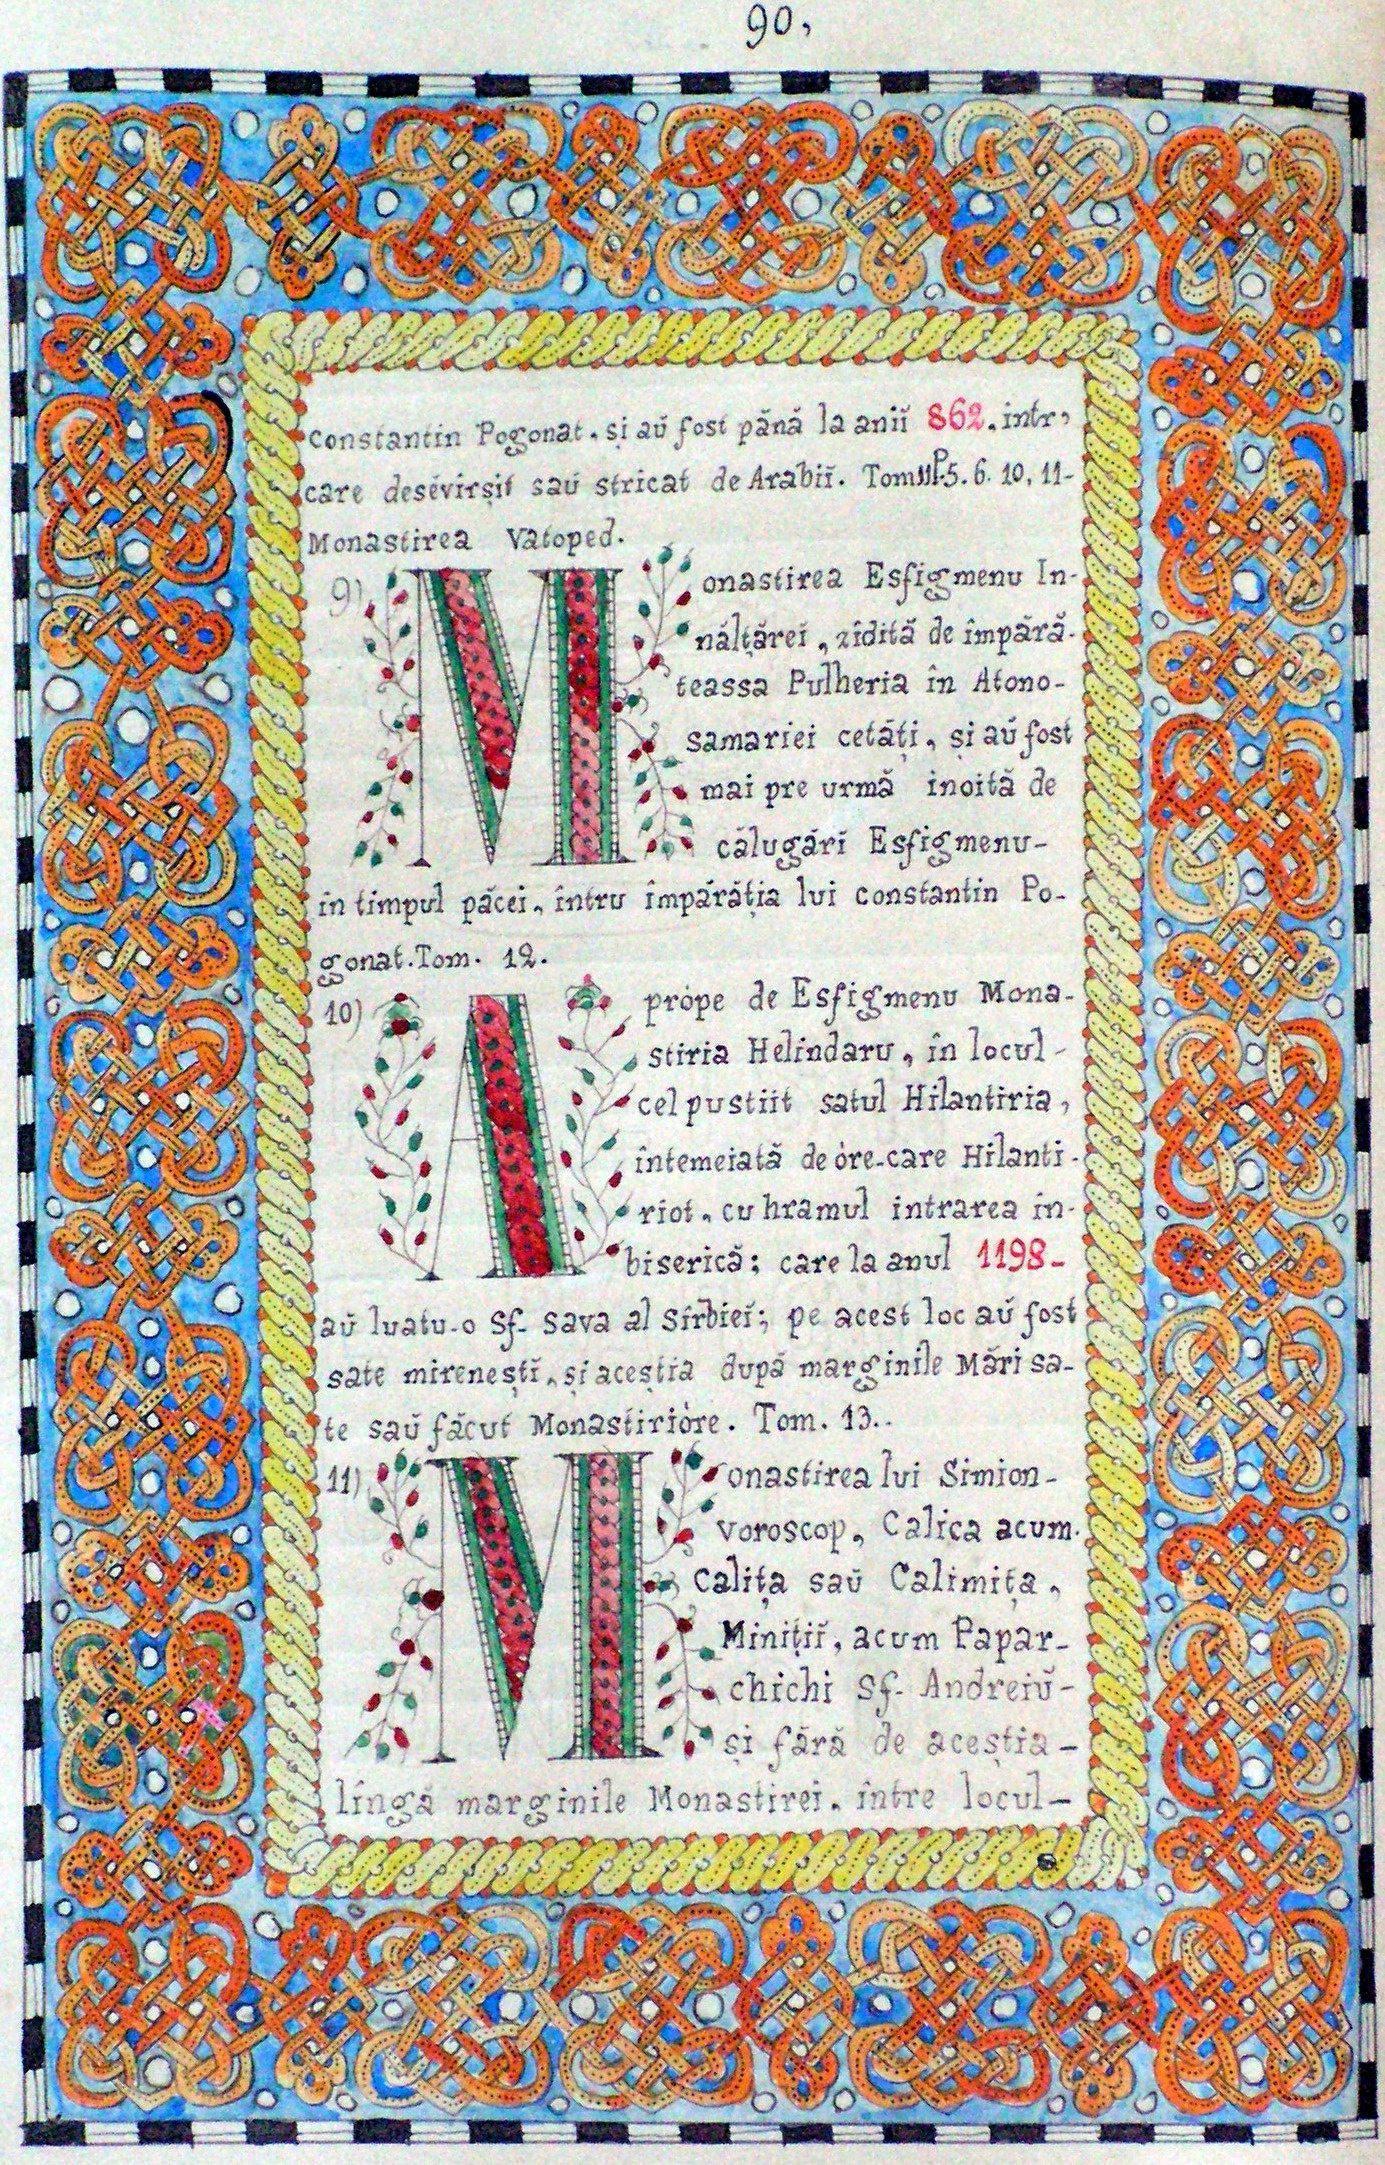 90,
Constantin Pogonat. și aŭ fost pănă la aniĭ 862. intr,
care desévirșit saŭ stricat de Arabiĭ. Tom III P. 5. 6. 10, 11-
Monastirea Vatoped.
9) Monastirea Esfigmenu In-
nălțăreĭ, zîdită de împără-
teassa Pulheria în Atono-
samariei cetăți, și aŭ fost
mai pre urmă inoită de
călugări Esfigmenu-
în timpul păcei, întru împărăția lui Constantin Po-
gonat. Tom. 12.
10) Aprópe de Esfigmenu Mona-
stiria Helindaru, în locul-
cel pustiit satul Hilantiria,
întemeiată de óre-care Hilanti-
riot, cu hramul intrarea in-
biserică; care la anul 1198-
aŭ luatu-o Sf- Sava al Sîrbieĭ; pe acest loc aŭ fost
sate mireneștĭ, și aceștia după marginile Mări sa-
te saŭ făcut Monastirióre. Tom. 13..
11) Monastirea lui Simion-
voroscop, Calica acum.
Calița saŭ Calimița,
Minițiĭ, acum Papar-
chichi Sf- Andreiŭ-
și fără de aceștia-
lîngă marginile Monastirei, între locul-